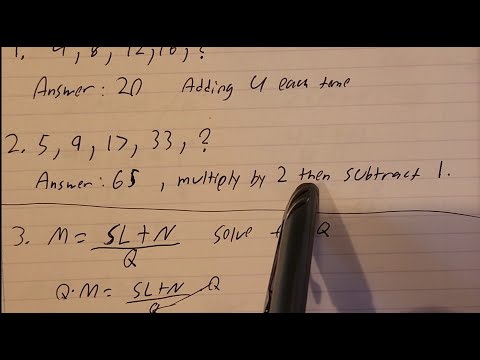 1. 4, 8, 12, 16, ?
Answer: 20 Adding 4 each time
2. 5, 9, 17, 33, ?
Answer: 65 , multiply by 2 then subtract 1.
3. M = SL+N / Q solve Q
Q·M = SL+N / Q Q